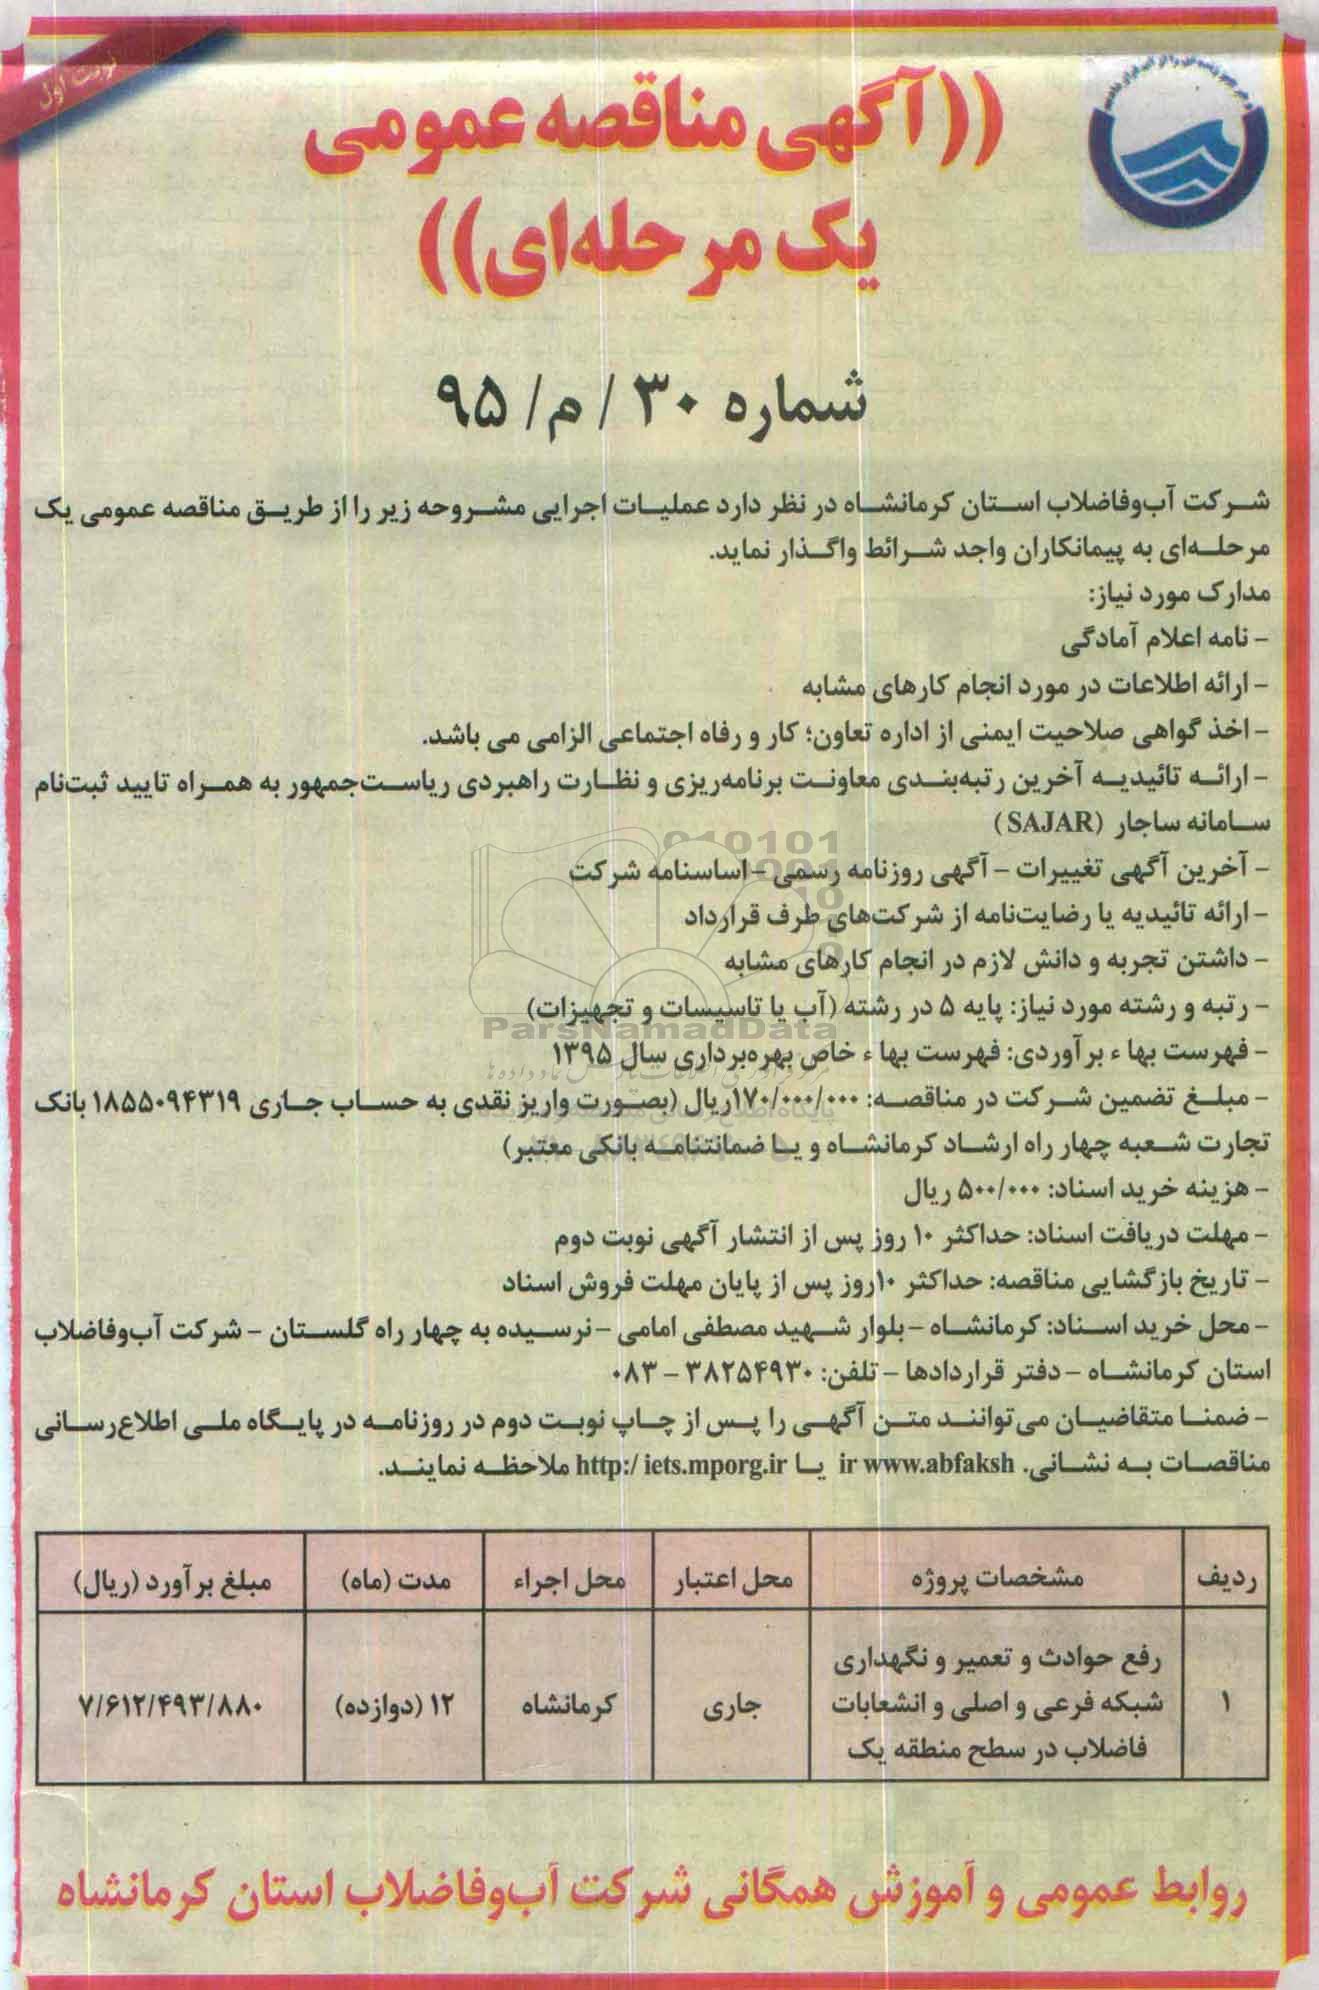 نوبت اول
((آگهی مناقصه عمومی
یک مرحله‌ای))
شماره ۳۰ / م/ ۹۵
شرکت آب‌وفاضلاب استان کرمانشاه در نظر دارد عملیات اجرایی مشروحه زیر را از طریق مناقصه عمومی یک
مرحله‌ای به پیمانکاران واجد شرائط واگذار نماید.
مدارک مورد نیاز:
- نامه اعلام آمادگی
- ارائه اطلاعات در مورد انجام کارهای مشابه
- اخذ گواهی صلاحیت ایمنی از اداره تعاون؛ کار و رفاه اجتماعی الزامی می باشد.
- ارائه تائیدیه آخرین رتبه‌بندی معاونت برنامه‌ریزی و نظارت راهبردی ریاست‌جمهور به همراه تایید ثبت‌نام
سامانه ساجار (SAJAR)
- آخرین آگهی تغییرات - آگهی روزنامه رسمی - اساسنامه شرکت
- ارائه تائیدیه یا رضایت‌نامه از شرکت‌های طرف قرارداد
- داشتن تجربه و دانش لازم در انجام کارهای مشابه
- رتبه و رشته مورد نیاز: پایه ۵ در رشته (آب یا تاسیسات و تجهیزات)
ParsNamadData
- فهرست بهاء برآوردی: فهرست بهاء خاص بهره‌برداری سال ۱۳۹۵
- مبلغ تضمین شرکت در مناقصه: ۱۷۰/۰۰۰/۰۰۰ریال (بصورت واریز نقدی به حساب جاری ۱۸۵۵۰۹۴۳۱۹ بانک
تجارت شعبه چهار راه ارشاد کرمانشاه و یا ضمانتنامه بانکی معتبر)
- هزینه خرید اسناد: ۵۰۰/۰۰۰ ریال
- مهلت دریافت اسناد: حداکثر ۱۰ روز پس از انتشار آگهی نوبت دوم
- تاریخ بازگشایی مناقصه: حداکثر ۱۰روز پس از پایان مهلت فروش اسناد
- محل خرید اسناد: کرمانشاه - بلوار شهید مصطفی امامی - نرسیده به چهار راه گلستان - شرکت آب‌وفاضلاب
استان کرمانشاه - دفتر قراردادها - تلفن: ۳۸۲۵۴۹۳۰ - ۰۸۳
- ضمنا متقاضیان می‌توانند متن آگهی را پس از چاپ نوبت دوم در روزنامه در پایگاه ملی اطلاع‌رسانی
مناقصات به نشانی. ir www.abfaksh یا http:/ iets.mporg.ir ملاحظه نمایند.
ردیف مشخصات پروژه محل اعتبار محل اجراء مدت (ماه) مبلغ برآورد (ریال)
رفع حوادث و تعمیر و نگهداری
۱ شبکه فرعی و اصلی و انشعابات جاری کرمانشاه ۱۲ (دوازده) ۷/۶۱۲/۴۹۳/۸۸۰
فاضلاب در سطح منطقه یک
روابط عمومی و آموزش همگانی شرکت آب‌وفاضلاب استان کرمانشاه